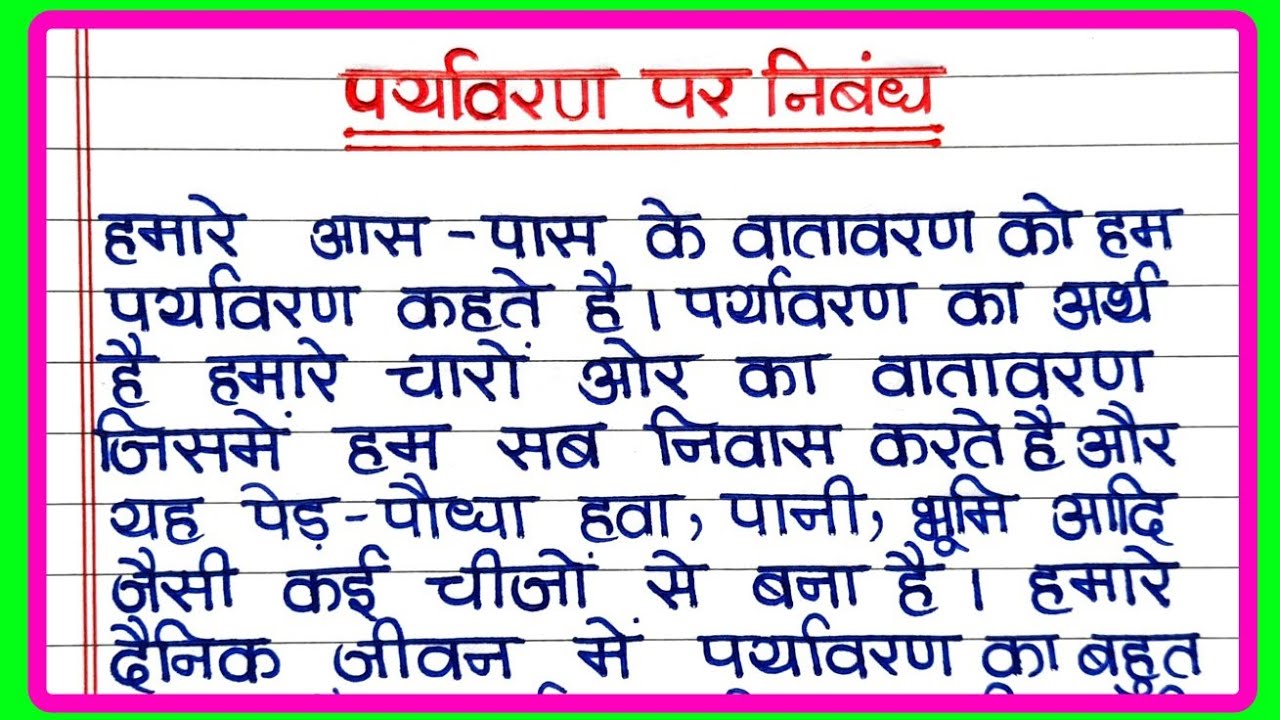 पर्यावरण पर निबंध
हमारे आस-पास के वातावरण को हम
पर्यावरण कहते है। पर्यावरण का अर्थ
है हमारे चारों ओर का वातावरण
जिसमें हम सब निवास करते है और
यह पेड़-पौधा हवा, पानी, भूमि आदि
जैसी कई चीजों से बना है। हमारे
दैनिक जीवन में पर्यावरण का बहुत